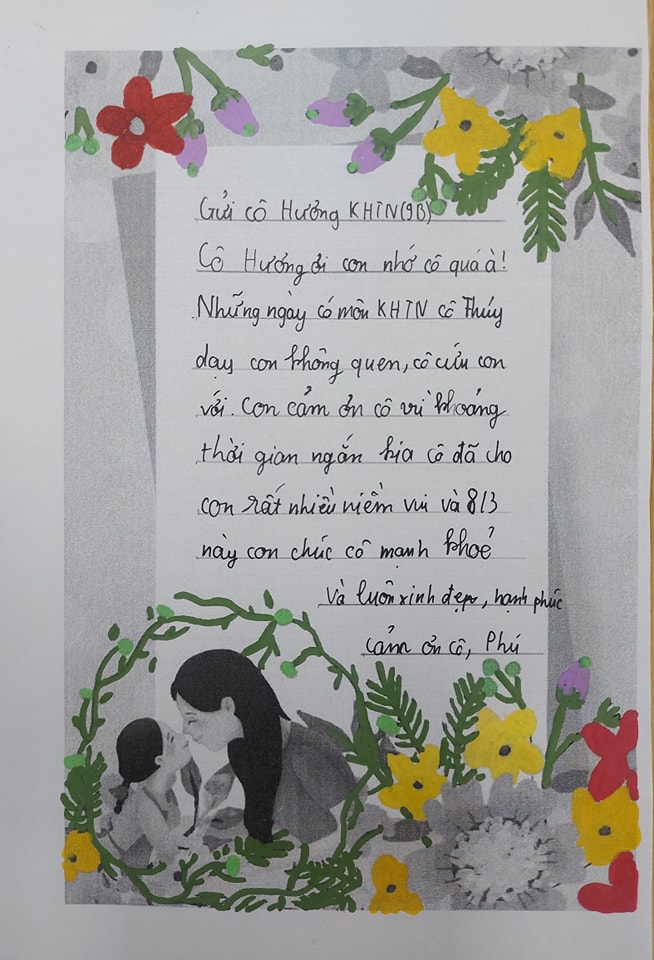 Gửi cô Hưởng KHTN(9B)
Cô Hưởng ơi con nhớ cô quá à!
Những ngày có môn KHTN cô Thúy
dạy con không quen, cô cứu con
với. Con cảm ơn cô vì khoảng
thời gian ngắn kia cô đã cho
con rất nhiều niềm vui và 8/3
này con chúc cô mạnh khoẻ
và luôn xinh đẹp, hạnh phúc
cảm ơn cô, Phú